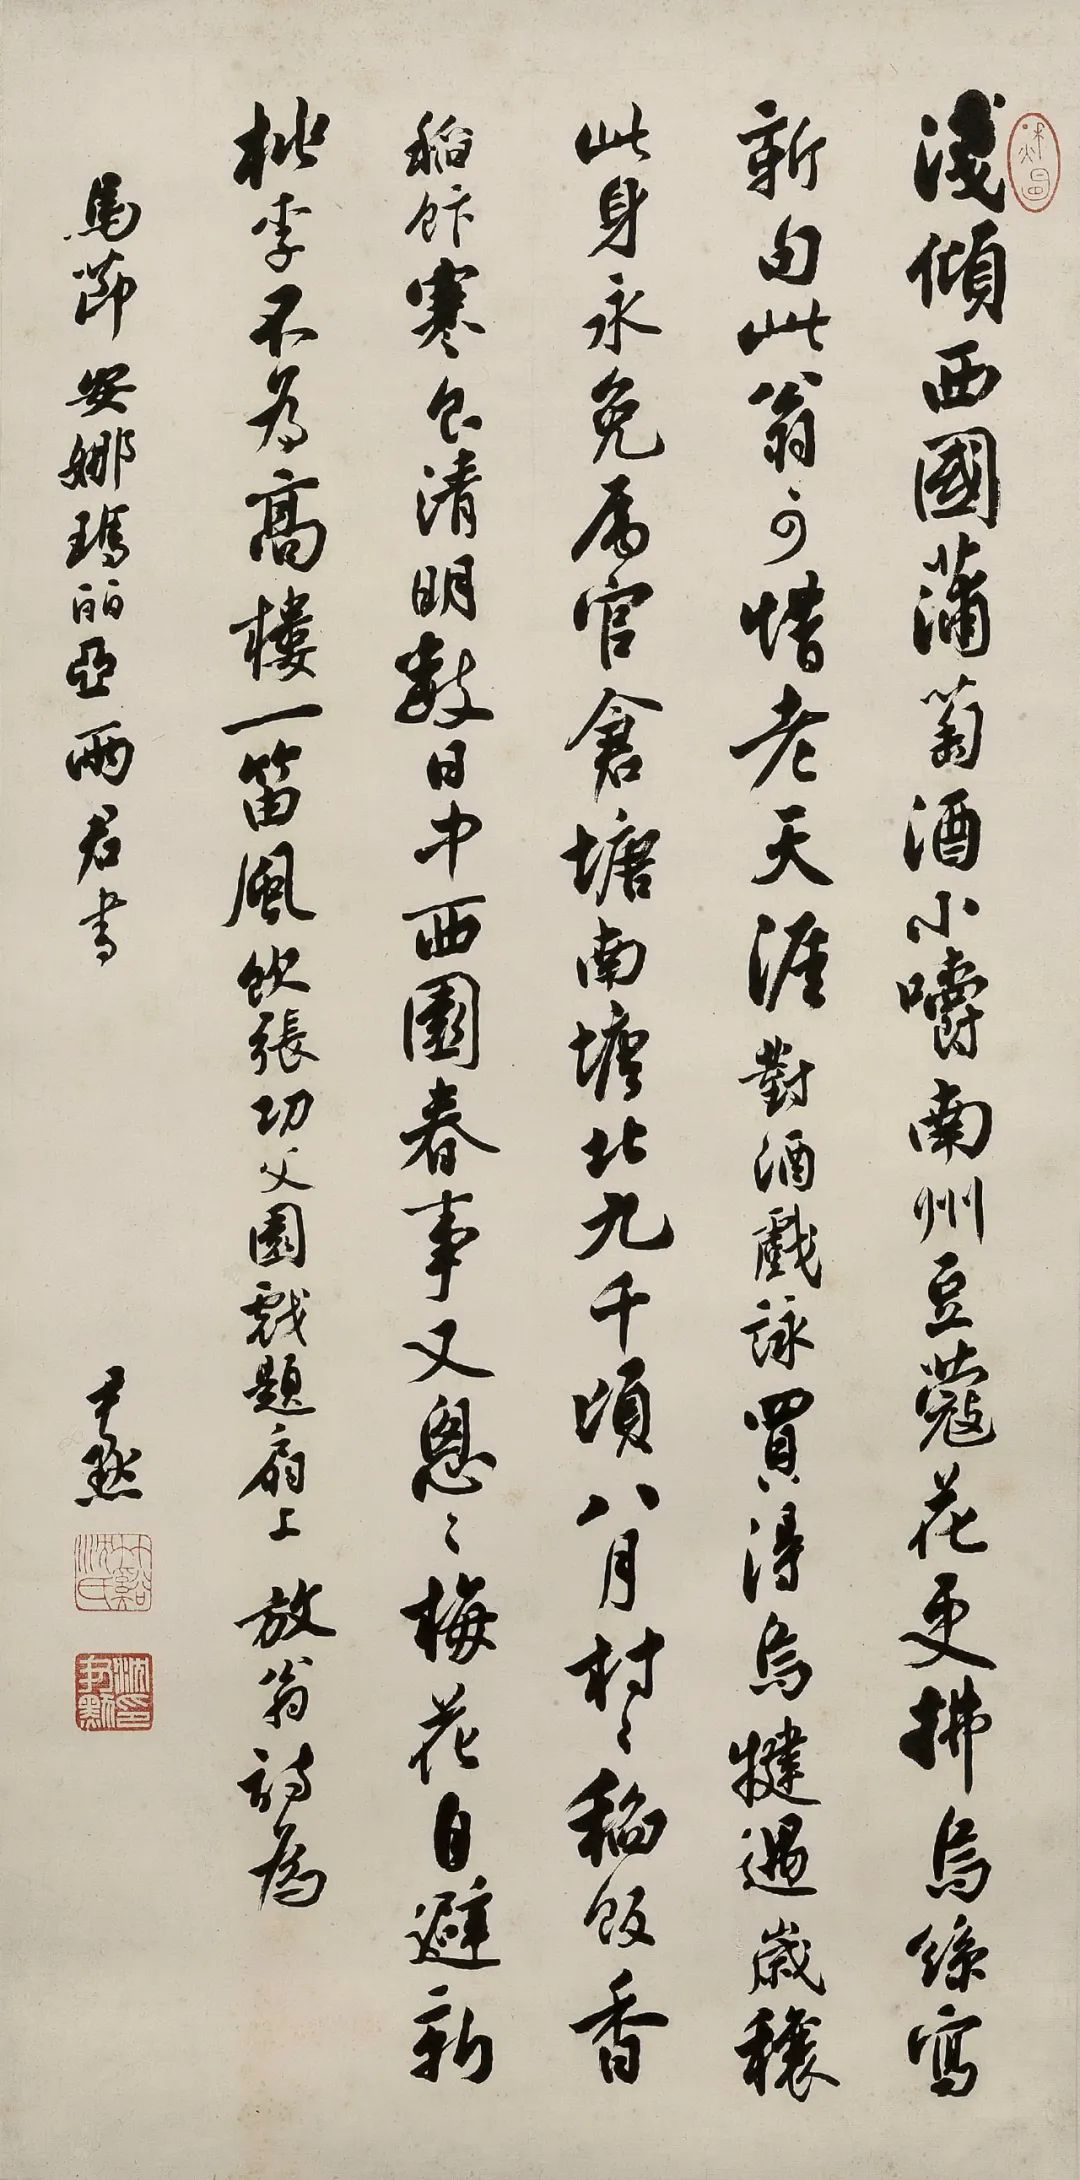 淺傾西國蒲萄酒小嚼南州豆蔻花更拂烏絲寫
新句此翁可惜老天涯對酒戲詠買得烏犍遇歲穰
此身永免屬官倉塘南塘北九千頃八月村〻稻飯香
稻飰寒食清明數日中西園春事又悤〻梅花自避新
桃李不為高樓一笛風飲張功父園戲題扇上放翁詩為
馬節安娜瑪丽亞兩君書
尹默
竹谿沈氏
沈尹默印